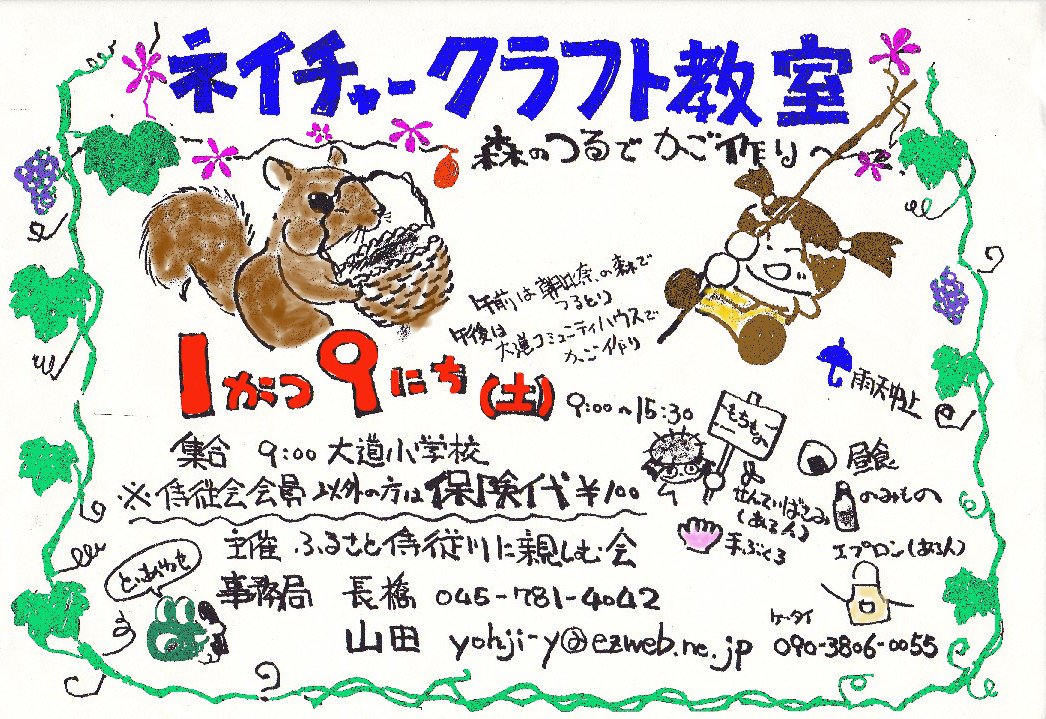 ネイチャークラフト教室
森のつるでかご作り〜
午前は朝比奈の森で
つるとり
午後は
大道コミュニティハウスで
かご作り
1がつ9にち(土) 9:00〜15:30
雨天中止
集合 9:00 大道小学校
※侍従会会員以外の方は保険代¥100
もちもの
昼食
のみもの
せんていばさみ
(ある人)
手ぶくろ
エプロン(ある人)
主催 ふるさと侍従川に親しむ会
といあわせ
事務局 長橋 045-781-4042
山田 yohji-y@ezweb.ne.jp ケータイ 090-3806-0055